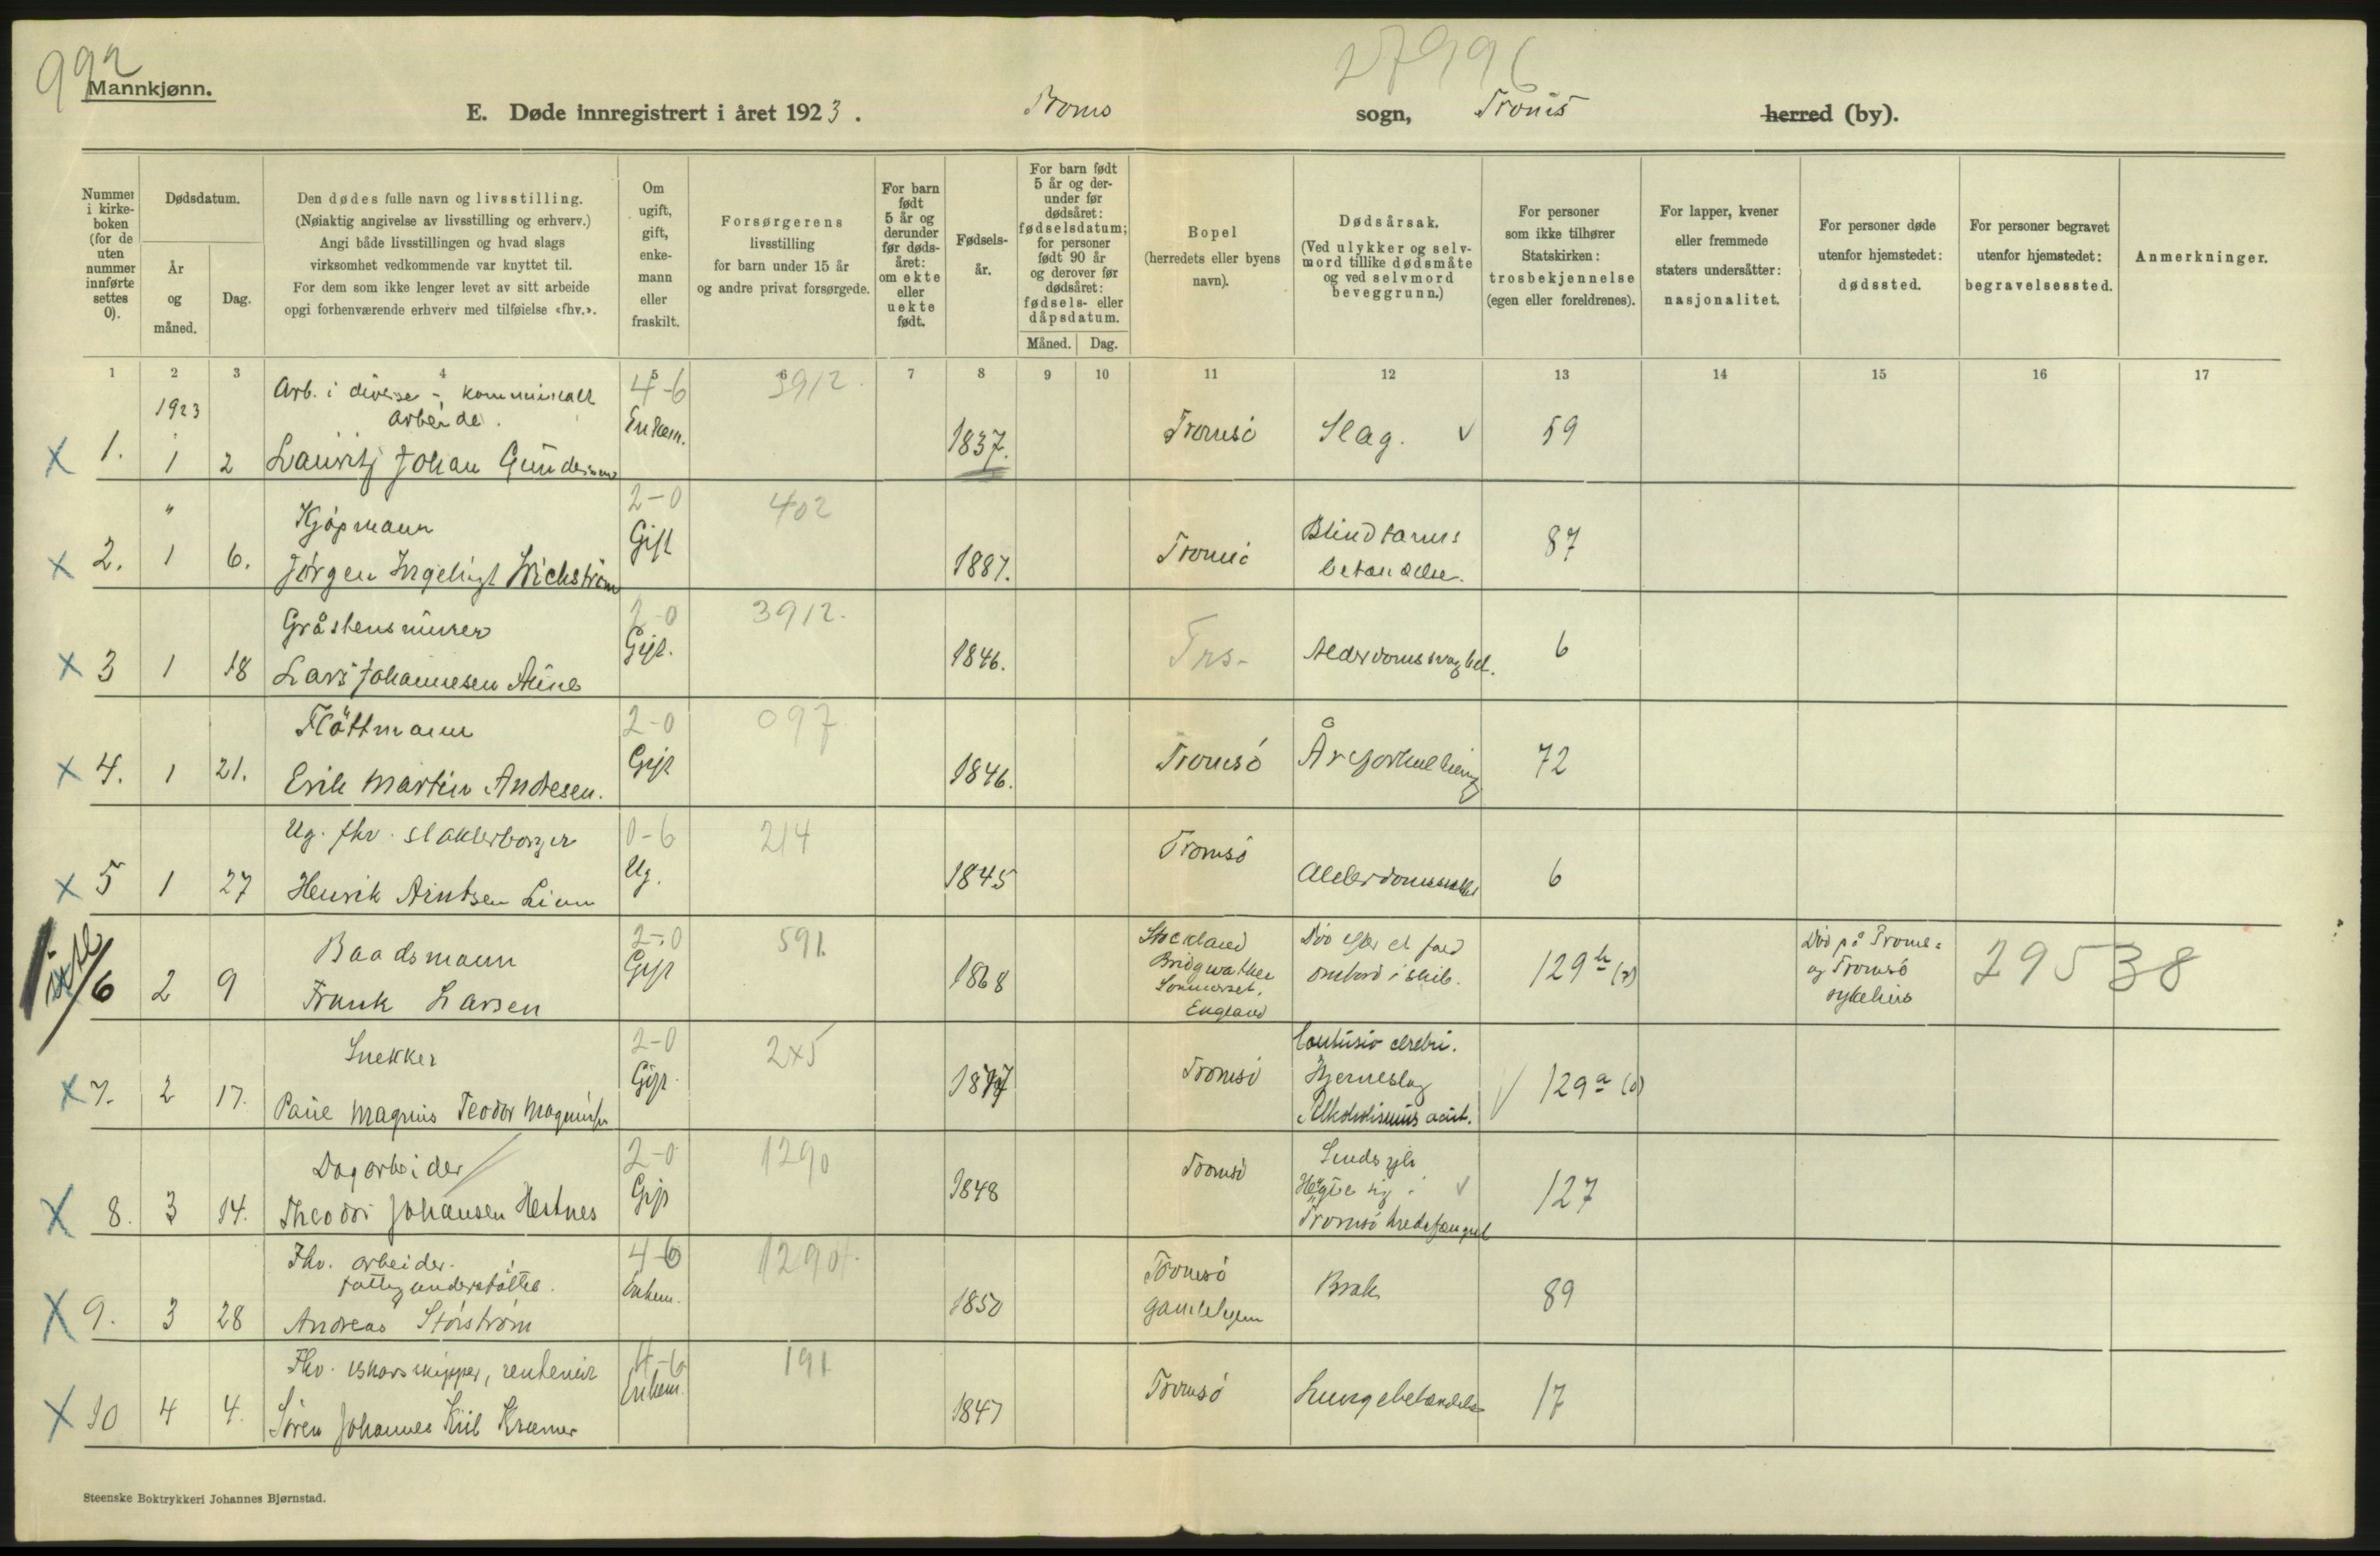 992
27996
Mannkjønn.
E. Døde innregistrert i året 1923. Tromsø sogn, Tromsø herred (by).
Nummer i kirkeboken (for de uten nummer innførte settes 0).
Dødsdatum.
År og måned.
Dag.
Den dødes fulle navn og livsstilling.
(Nøiaktig angivelse av livsstilling og erhverv.)
Angi både livsstillingen og hvad slags
virksomhet vedkommende var knyttet til.
For dem som ikke lenger levet av sitt arbeide
opgi forhenværende erhverv med tilføielse «fhv.».
Om ugift, gift, enkemann eller fraskilt.
Forsørgerens
livsstilling
for barn under 15 år
og andre privat forsørgede.
For barn født 5 år og derunder før dødsåret: om ekte eller uekte født.
Fødselsår.
For barn født 5 år og derunder før dødsåret: fødselsdatum; for personer født 90 år og derover før dødsåret: fødsels- eller dåpsdatum.
Måned. Dag.
Bopel
(herredets eller byens
navn).
Dødsårsak.
(Ved ulykker og selvmord tillike dødsmåte og ved selvmord beveggrunn.)
For personer
som ikke tilhører
Statskirken:
trosbekjennelse
(egen eller foreldrenes).
For lapper, kvener
eller fremmede
staters undersåtter:
nasjonalitet.
For personer døde
utenfor hjemstedet:
dødssted.
For personer begravet
utenfor hjemstedet:
begravelsessted.
Anmerkninger.
1 2 3 4 5 6 7 8 9 10 11 12 13 14 15 16 17
1923 Arb. i diverse - kommunalt 4-6 3912.
arbeide. Enkem.
X 1. 1 2 Lauritz Johan Gundersen 1837. Tromsö Slag. V 59
" Kjøpmann 2-0 402
X 2. 1 6. Jørgen Wichstrøm Gift 1887. Tromsö Blindtarms betændelse. 87
Gråstensmurer 2-0 3912.
X 3 1 18 Lars Johannesen Gift. 1846. Trs- Alderdomssvaghed. 6
Flöttmann 2-0 097
X 4. 1 21. Erik Martin Andresen. Gift 1846. Tromsö Åreforkalkning 72
Ug. fhv. slakterborger 0-6 214
X 5 1 27 Henrik Arntsen Ug. 1845 Tromsö 6
Baadsmann 2-0 591.
6 2 9 Frank Larsen Gift 1868 Bridgwather England Död efter et fald ombord i skib. 129 Död på og Tromsö sykehus 29538
Snekker 2-0 2x5
X 7. 2 17. Magnus Teodor Gift. Tromsö Contusio cerebri. Hjerneslag Alkoholismus acut. V 129 a
Dagarbeider 2-0 1290
X 8. 3 14. Theodor Johansen Hestnes Gift 1848 Tromsö Sindssyk Hængte sig i Tromsö kredsfængsel V 127
Fhv. arbeider. 4-6
fattigunderstöttet. Enkem.
X 9. 3 28 Andreas Storström 1850 Tromsö gamlehjem Brok 89
Fhv. ishavsskipper, rentenir 4-6 191
X 10 4 4. Sören Johannes Kiil Kræmer Enkem. 1847 Tromsö Lungebetændelse 17
Steenske Boktrykkeri Johannes Bjørnstad.